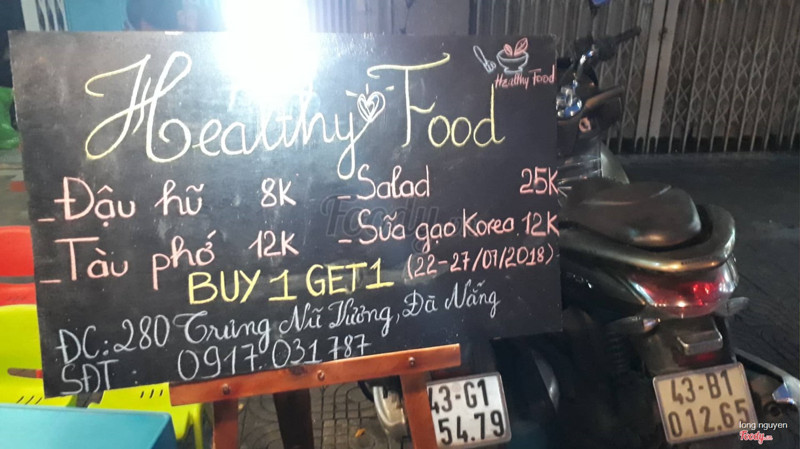 Healthy Food
Healthy Food
- Đậu hũ 8K
- Salad 25K
- Tàu phớ 12K
- Sữa gạo Korea 12K
BUY 1 GET 1 (22-27/07/2018)
ĐC: 280 Trưng Nữ Vương, Đà Nẵng
SĐT: 0917.031787
43-G1
54.79
43-B1
012.65
long nguyen
Foody.vn